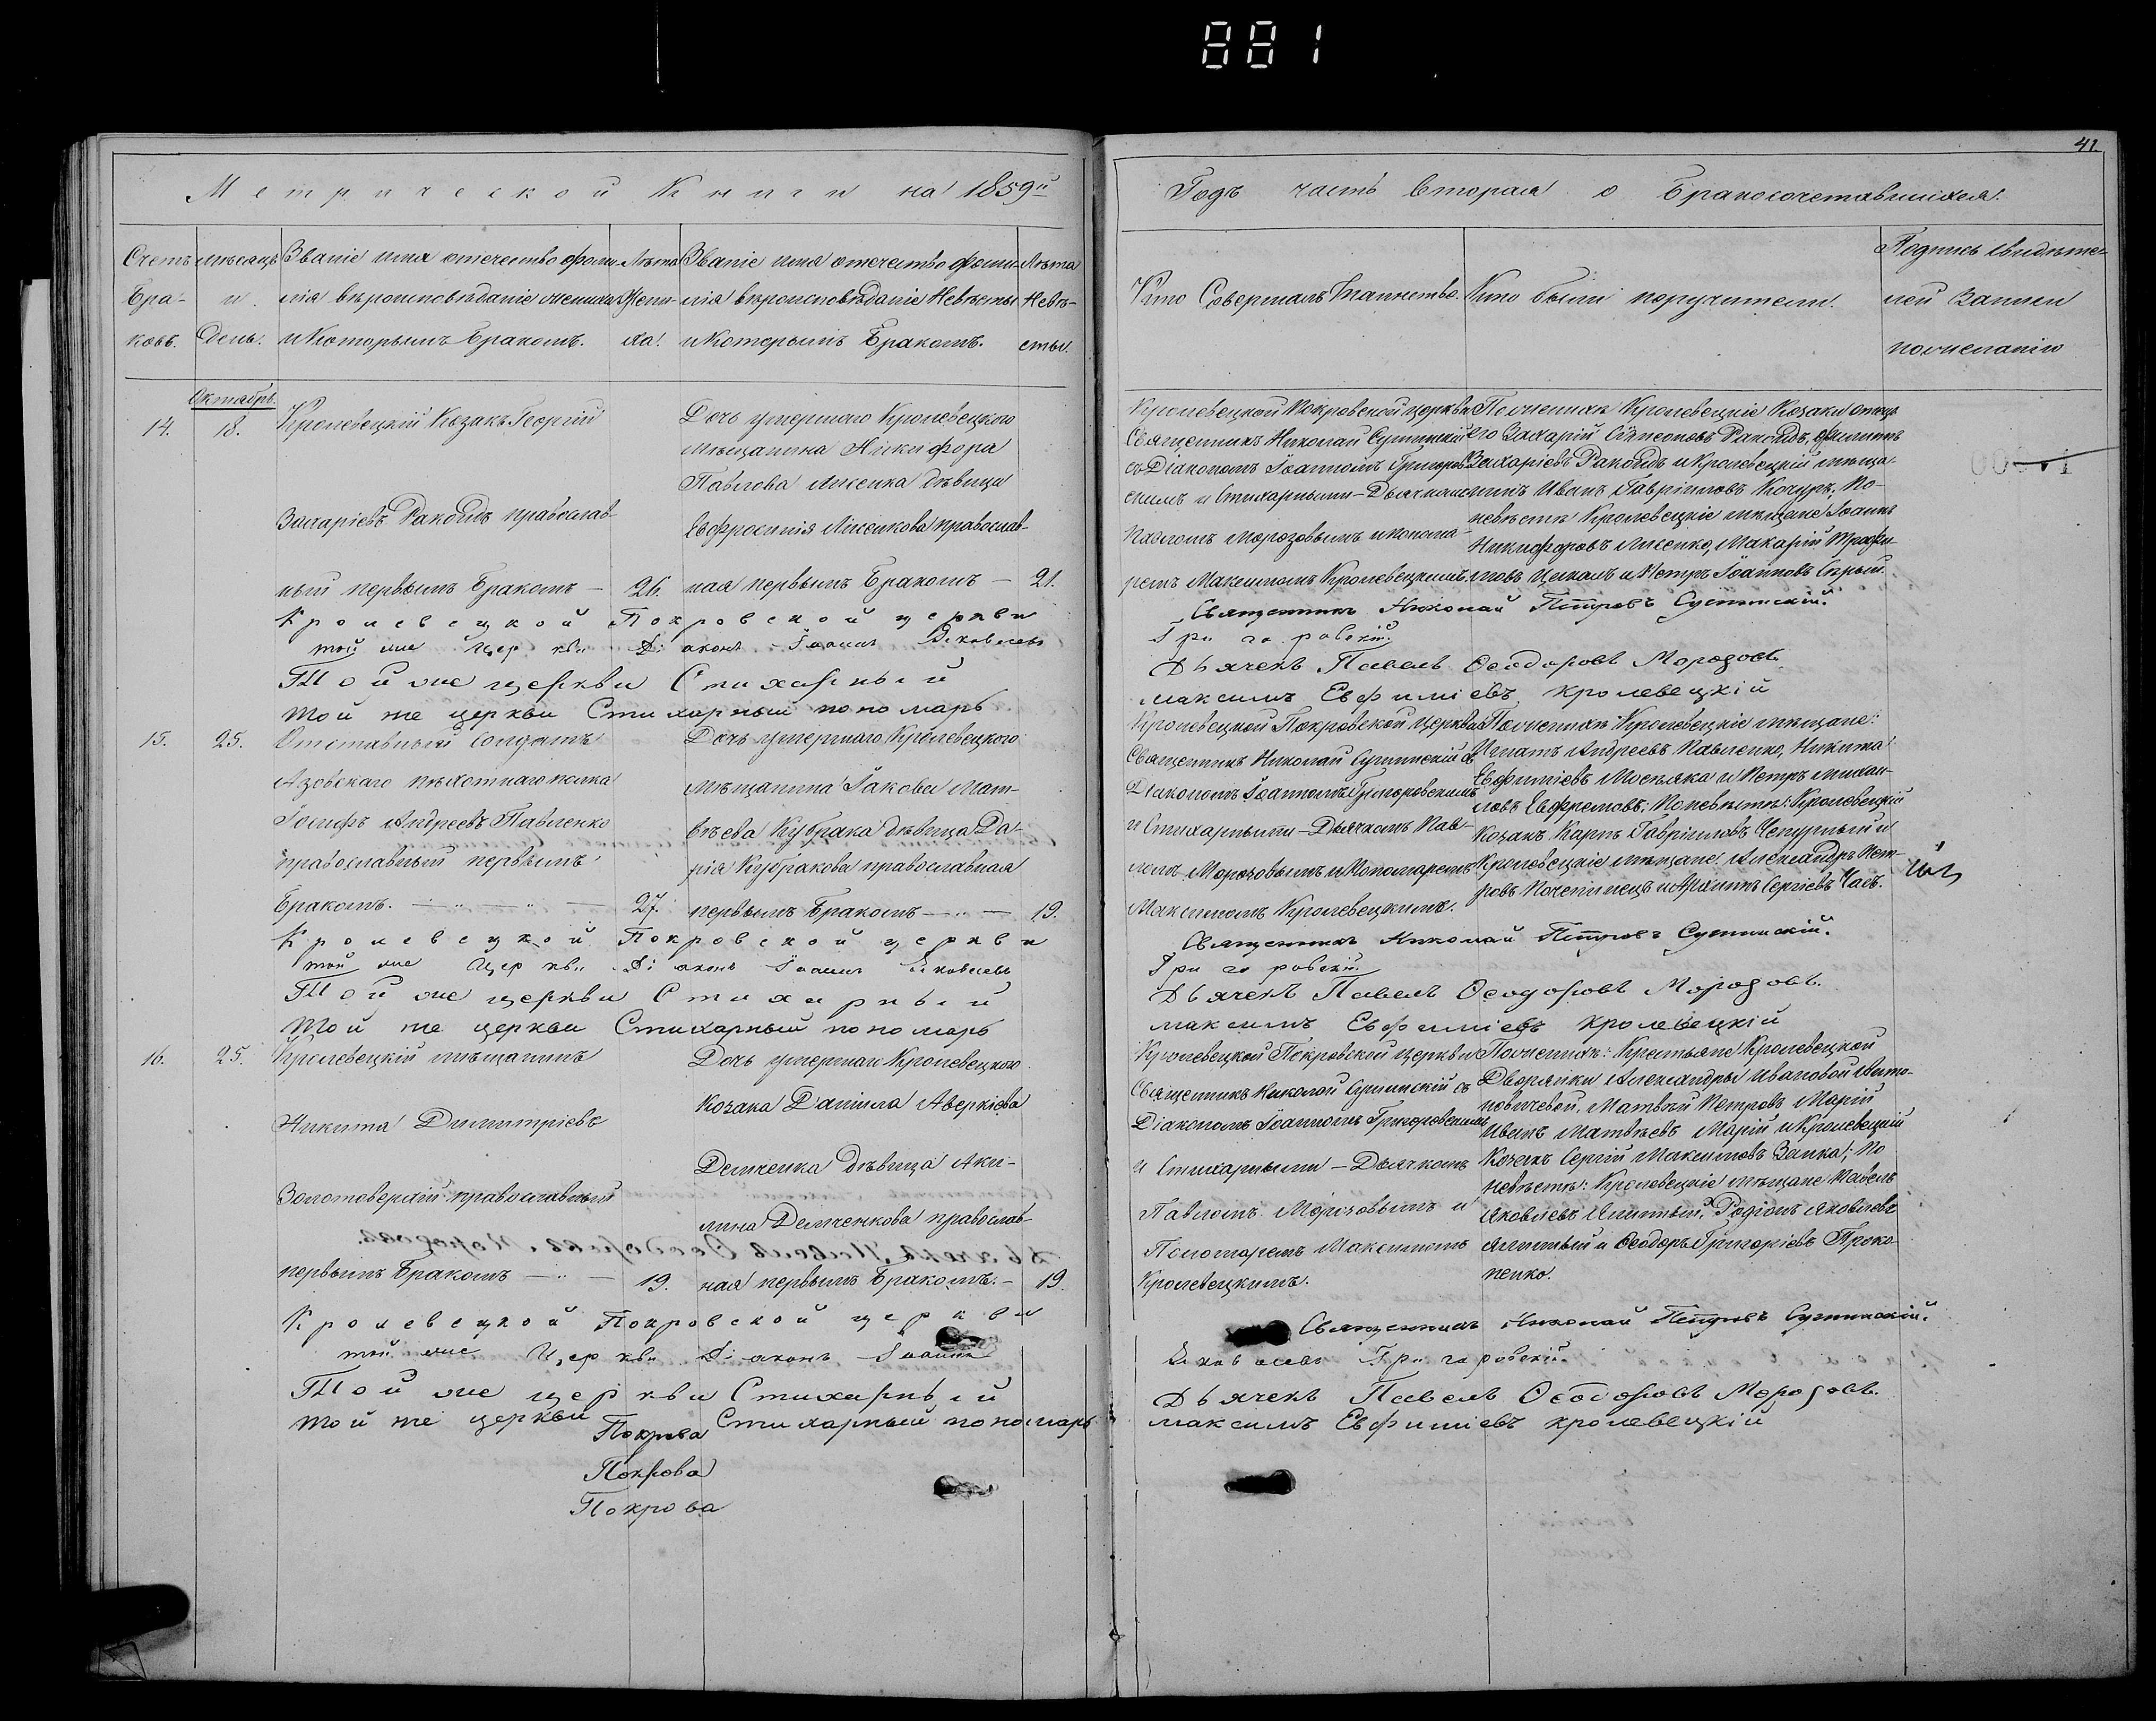 881
41
Метрической Книги на 1859й
Годъ часть вторая о Бракосочетавшихся.
Счетъ Бра- ковъ.
мѣсяцъ и День.
Званіе имя отечество фами-
лія вѣроисповѣданіе жениха
и Которымъ Бракомъ.
Лѣта Жени- ха.
Званіе имя отечество фами-
лія вѣроисповѣданіе Невѣсты
и Которымъ Бракомъ.
Лѣта Невѣ- сты.
Кто Совершалъ Таинство.
Кто были поручители.
Подпись свидѣте-
лей Записи
по желанію
Октябрь.
14.
18.
Кролевецкій Козакъ Георгій
Захаріевъ православ-
ный первымъ Бракомъ —
26.
Дочь умершаго Кролевецкого
мѣщанина Никифора
Павлова Лисенка дѣвица
Евфросинія Лисенкова православ-
ная первымъ Бракомъ —
21.
Кролевецкой Покровской церкви
Священникъ Николай
съ Діакономъ Іоанномъ Григоров-
скимъ и Стихарными — Дьячкомъ
Павломъ Морозовымъ и понома-
ремъ Максимомъ Кролевецкимъ.
По женихѣ Кролевецкіе Козаки отецъ
его Захарій Сѵмеоновъ Филиппъ
Захаріевъ и Кролевецкій мѣща-
нинъ Иванъ Гавріиловъ Кочуръ, по
невѣстѣ Кролевецкіе мѣщане Іоаннъ
Никифоровъ Лисенко, Макарій
и Петръ Іоанновъ
Кролевецкой Покровской церкви
Священникъ Николай Петровъ
той же Церкви Діаконъ Іоаннъ Яковлевъ
Григоровскій.
Той же церкви Стихарный
Дьячекъ Павелъ Ѳеодоровъ Морозовъ.
Той же церкви Стихарный пономарь
Максимъ Евфиміевъ Кролевецкій
15.
25.
Отставный Солдатъ
Азовскаго пѣхотнаго полка
Іосифъ Андреевъ Павленко
православный первымъ
Бракомъ. —
27.
Дочь умершаго Кролевецкого
мѣщанина Іакова Мат-
вѣева Кубрака дѣвица Да-
рія Кубракова православная
первымъ Бракомъ —
19.
Кролевецкой Покровской Церкви
Священникъ Николай съ
Діакономъ Іоанномъ Григоровскимъ
и Стихарными — Дьячкомъ Пав-
ломъ Морозовымъ и Пономаремъ
Максимомъ Кролевецкимъ.
По женихѣ Кролевецкіе мѣщане:
Игнатъ Андреевъ Павленко, Никита
Евфиміевъ и Петръ Михаи-
ловъ Евфремовъ; По невѣстѣ: Кролевецкій
Козакъ Карпъ Гавріиловъ Чепурный и
Кролевецкіе мѣщане: Александръ Пет-
ровъ и Сергіевъ Часъ.
Кролевецкой Покровской церкви
Священникъ Николай Петровъ
той же Церкви Діаконъ Іоаннъ Яковлевъ
Григоровскій.
Той же церкви Стихарный
Дьячекъ Павелъ Ѳеодоровъ Морозовъ.
Той же церкви Стихарный пономарь
Максимъ Евфиміевъ Кролевецкій
16.
25.
Кролевецкій мѣщанинъ
Никита Димитріевъ
православный
первымъ Бракомъ —
19.
Дочь умершаго Кролевецкого
Козака Даніила Аверкіева
Демченка дѣвица Аки-
лина Демченкова православ-
ная первымъ Бракомъ. —
19.
Кролевецкой Покровской Церкви
Священникъ Николай съ
Діакономъ Іоанномъ Григоровскимъ
и Стихарными — Дьячкомъ
Павломъ Морозовымъ и
Пономаремъ Максимомъ
Кролевецкимъ.
По женихѣ: Крестьяне Кролевецкой
Дворянки Александры Ивановой Анто-
новичевой, Матвѣй Петровъ Марій
Иванъ Матвѣевъ Марій и Кролевецкій
Козакъ Сергій Максимовъ Заика; По
Невѣстѣ: Кролевецкіе Мѣщане Павелъ
Яковлевъ Родіонъ Яковлевъ
и Ѳеодоръ Григоріевъ Проко-
пенко.
Кролевецкой Покровской церкви
Священникъ Николай Петровъ
той же Церкви Діаконъ Іоаннъ
Яковлевъ Григоровскій.
Той же церкви Стихарный
Дьячекъ Павелъ Ѳеодоровъ Морозовъ.
Той же церкви Стихарный пономарь
Максимъ Евфиміевъ Кролевецкій
Покрова
Покрова
Покрова